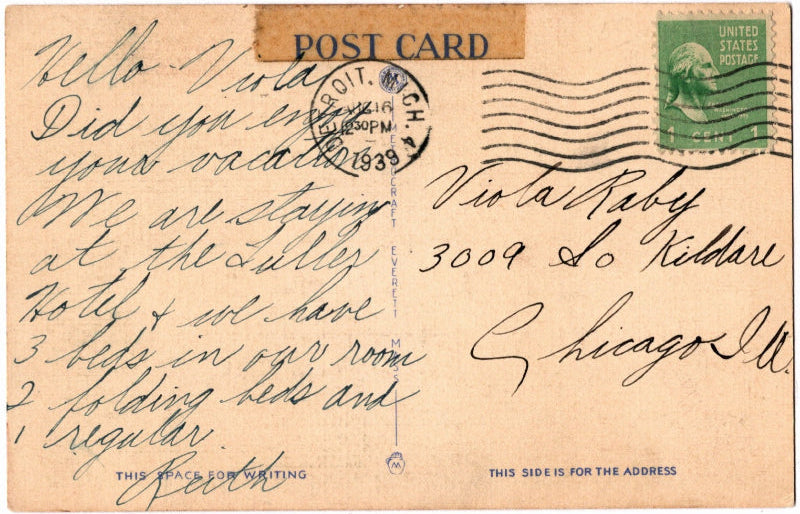 POST CARD
UNITED
STATES
POSTAGE
1 CENT 1
DETROIT, MICH. 4
AUG 16
12 30 PM
1939
Hello Viola
Did you enjoy
your vacation
We are staying
at the Tuller
Hotel & we have
3 beds in our room
2 folding beds and
1 regular
Ruth
Viola Raby
3009 So Kildare
Chicago Ill.
MELLOCRAFT EVERETT MASS
M
THIS SPACE FOR WRITING
THIS SIDE IS FOR THE ADDRESS